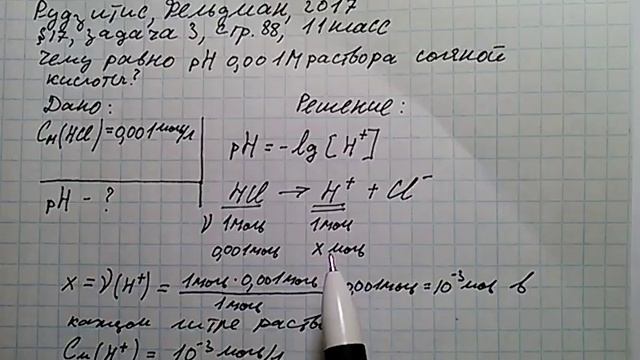 Рудзитис, Фельдман, 2017
§17, задача 3, стр. 88, 11 класс
Чему равно pH 0,001М раствора соляной
кислоты?
Дано: Решение:
Cм(HCl)=0,001моль/л
pH = -lg [H⁺]
pH - ?
HCl → H⁺ + Cl⁻
ν 1моль 1моль
0,001моль x моль
x = ν(H⁺) = 1моль · 0,001моль / 1моль 0,001моль = 10⁻³ моль в
каждом литре
Cм(H⁺) = 10⁻³ моль/л